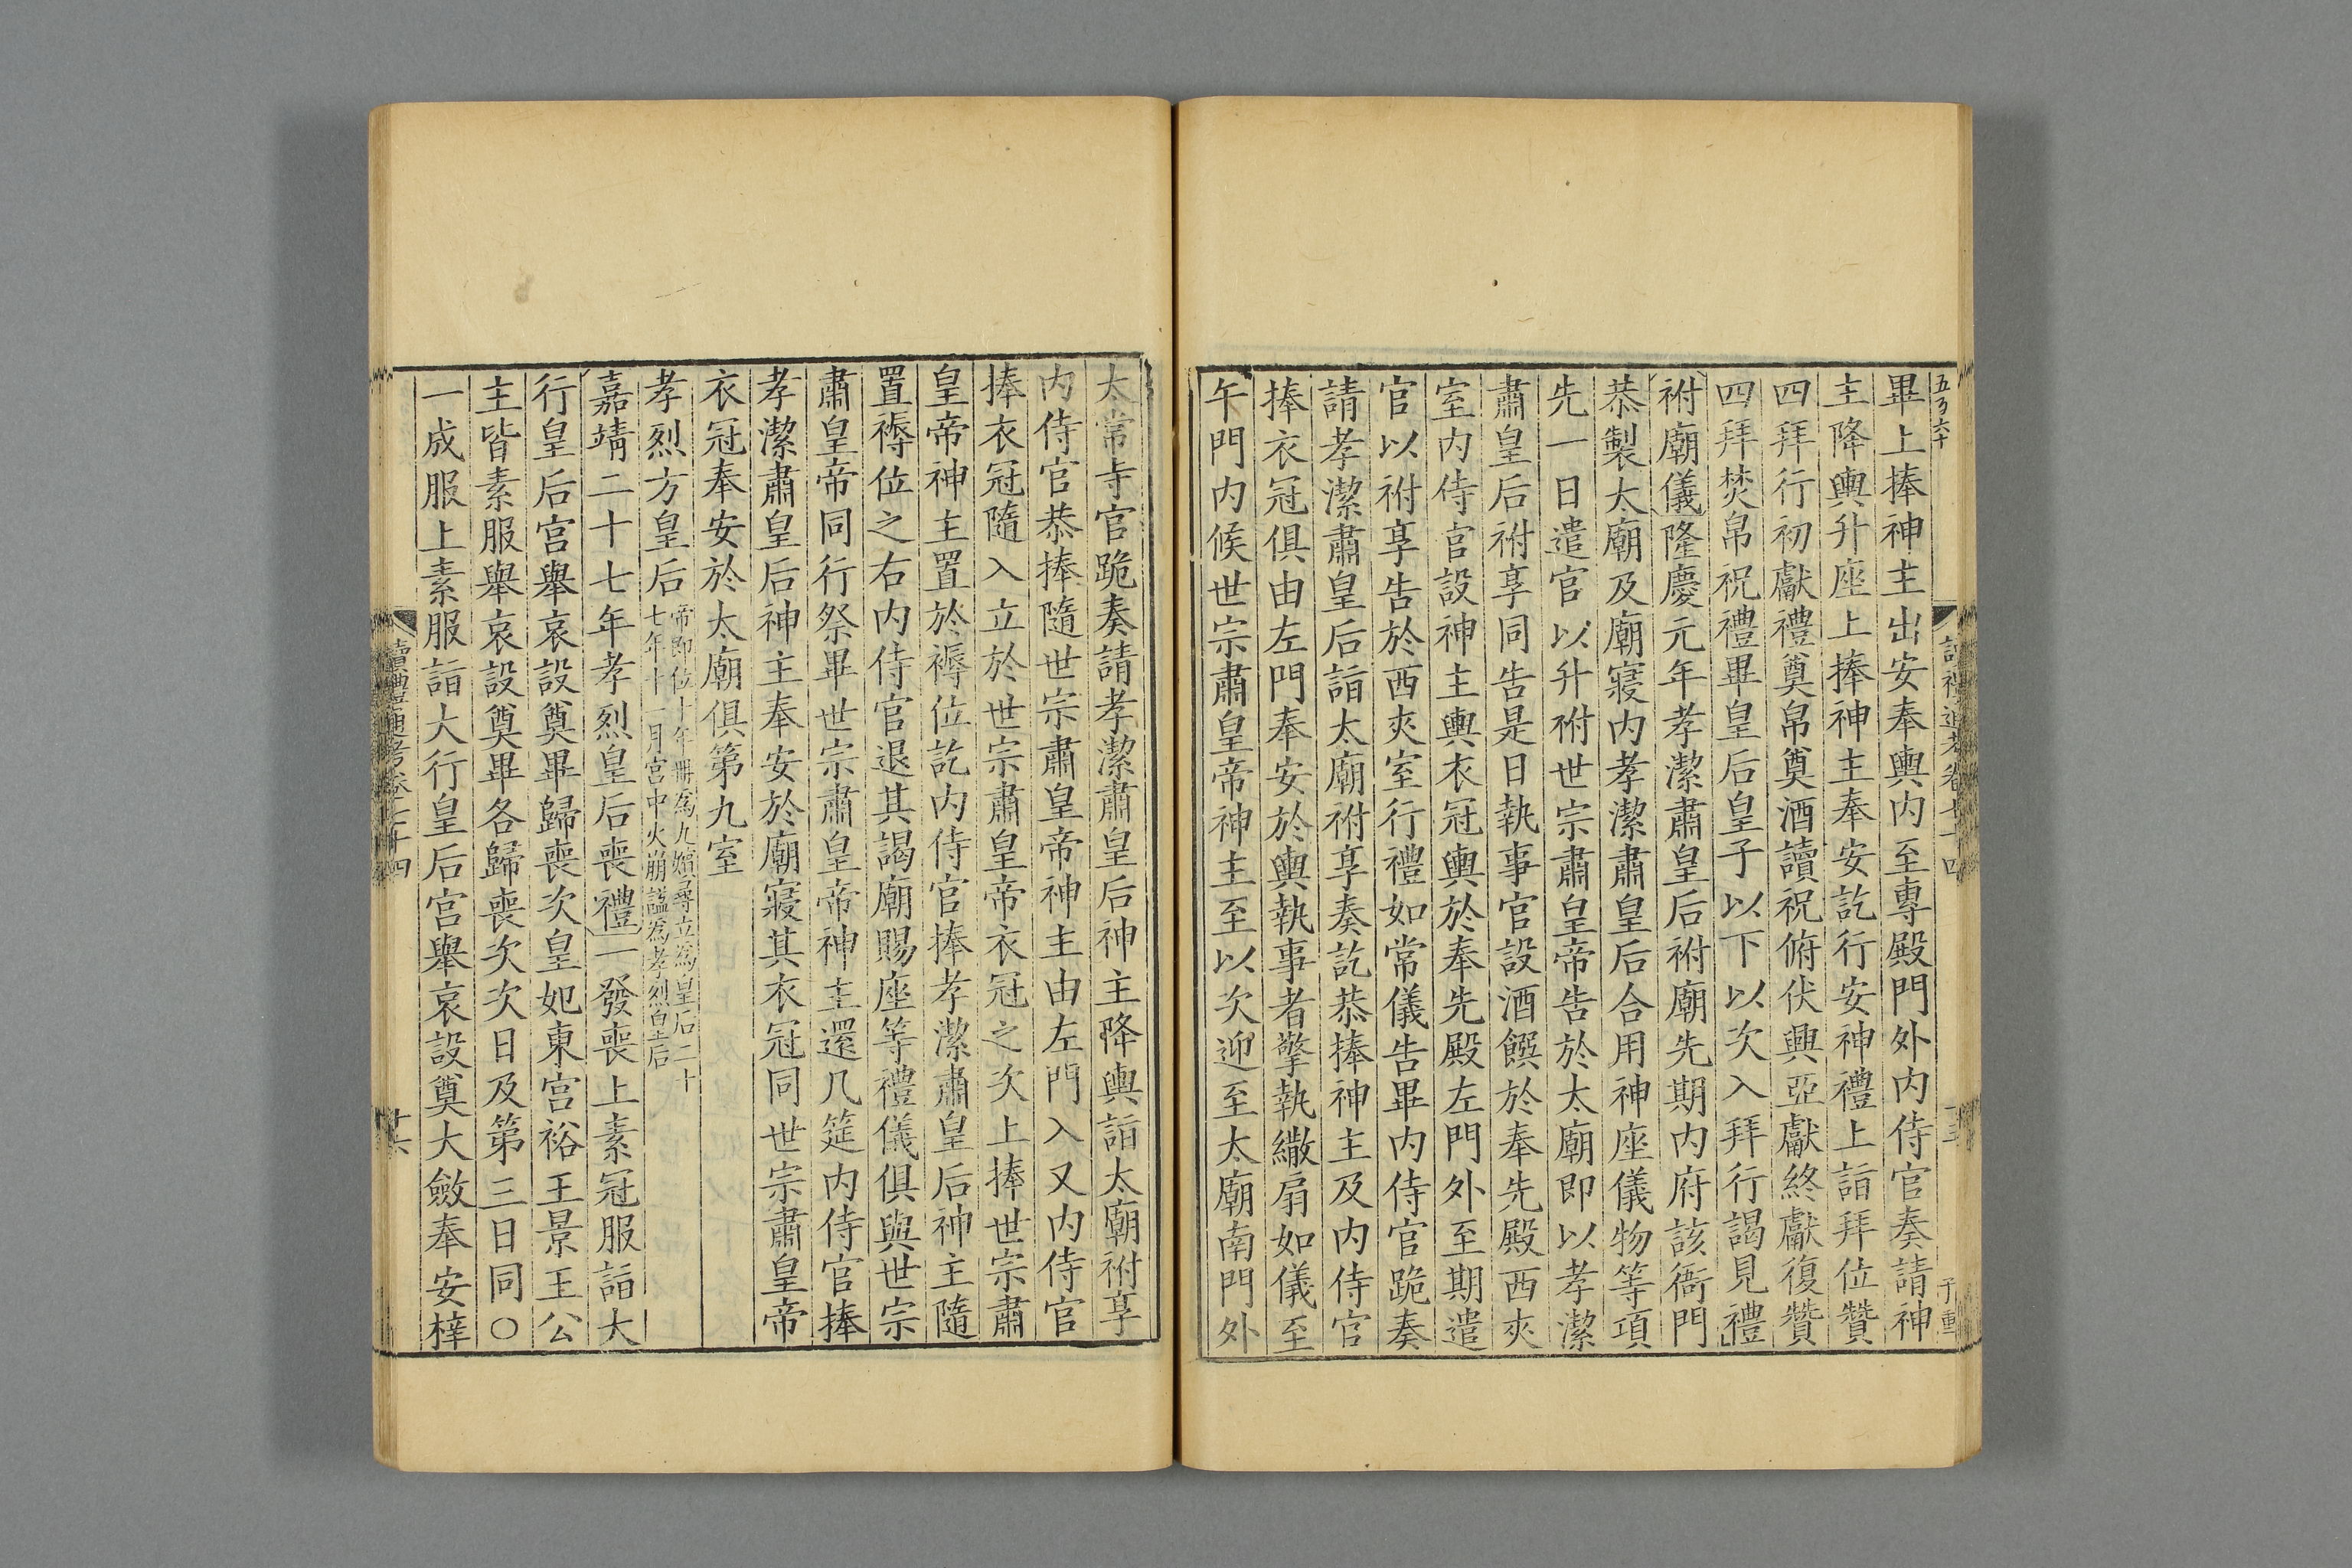 五百六十
讀禮通考卷七十四
子重
畢上捧神主出安奉輿内至專殿門外内侍官奏請神
主降輿升座上捧神主奉安訖行安神禮上詣拜位贊
四拜行初獻禮奠帛奠酒讀祝俯伏興亞獻終獻復贊
四拜焚帛祝禮畢皇后皇子以下以次入拜行謁見禮
祔廟儀隆慶元年孝潔肅皇后祔廟先期内府該衙門
恭製太廟及廟寢内孝潔肅皇后合用神座儀物等項
先一日遣官以升祔世宗肅皇帝告於太廟即以孝潔
肅皇后祔享同告是日執事官設酒饌於奉先殿西夾
室内侍官設神主輿衣冠輿於奉先殿左門外至期遣
官以祔享告於西夾室行禮如常儀告畢内侍官跪奏
請孝潔肅皇后詣太廟祔享奏訖恭捧神主及内侍官
捧衣冠俱由左門奉安於輿執事者擎執繖扇如儀至
午門内候世宗肅皇帝神主至以次迎至太廟南門外
太常寺官跪奏請孝潔肅皇后神主降輿詣太廟祔享
内侍官恭捧隨世宗肅皇帝神主由左門入又内侍官
捧衣冠隨入立於世宗肅皇帝衣冠之次上捧世宗肅
皇帝神主置於褥位訖内侍官捧孝潔肅皇后神主隨
置褥位之右内侍官退其謁廟賜座等禮儀俱與世宗
肅皇帝同行祭畢世宗肅皇帝神主還几筵内侍官捧
孝潔肅皇后神主奉安於廟寢其衣冠同世宗肅皇帝
衣冠奉安於太廟俱第九室
孝烈方皇后
帝即位十年冊為九嬪尋立為皇后二十
七年十一月宮中火崩諡為孝烈皇后
嘉靖二十七年孝烈皇后喪禮一發喪上素冠服詣大
行皇后宮舉哀設奠畢歸喪次皇妃東宮裕王景王公
主皆素服舉哀設奠畢各歸喪次次日及第三日同○
一成服上素服詣大行皇后宮舉哀設奠大斂奉安梓
讀禮通考卷七十四
十六